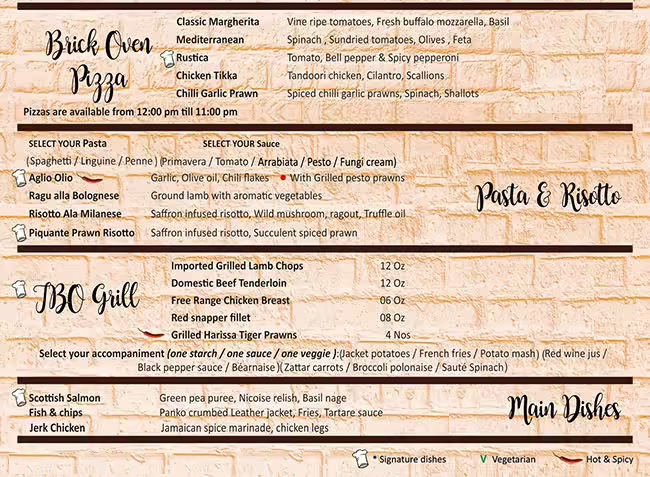 Brick Oven
Pizza
Classic Margherita Vine ripe tomatoes, Fresh buffalo mozzarella, Basil
Mediterranean Spinach , Sundried tomatoes, Olives , Feta
Rustica Tomato, Bell pepper & Spicy pepperoni
Chicken Tikka Tandoori chicken, Cilantro, Scallions
Chilli Garlic Prawn Spiced chilli garlic prawns, Spinach, Shallots
Pizzas are available from 12:00 pm till 11:00 pm
SELECT YOUR Pasta SELECT YOUR Sauce
(Spaghetti / Lnguine / Penne ) (Primavera / Tomato / Arrabiata / Pesto / Fungi cream)
Aglio Olio Garlic, Olive oil, Chili flakes • With Grilled pesto prawns
Ragu alla Bolognese Ground lamb with aromatic vegetables
Risotto Ala Milanese Saffron infused risotto, Wild mushroom, ragout, Truffle oil
Piquante Prawn Risotto Saffron infused risotto, Succulent spiced prawn
Pasta & Risotto
TBO Grill
Imported Grilled Lamb Chops 12 Oz
Domestic Beef Tenderloin 12 Oz
Free Range Chicken Breast 06 Oz
Red snapper fillet 08 Oz
Grilled Harissa Tiger Prawns 4 Nos
Select your accompaniment (one starch / one sauce / one veggie ):(Jacket potatoes / French fries / Potato mash) (Red wine jus /
Black pepper sauce / Béarnaise)(Zattar carrots / Broccoli polonaise / Sauté Spinach)
Scottish Salmon Green pea puree, Nicoise relish, Basil nage
Fish & chips Panko crumbed Leather jacket, Fries, Tartare sauce
Jerk Chicken Jamaican spice marinade, chicken legs
Main Dishes
* Signature dishes V Vegetarian Hot & Spicy